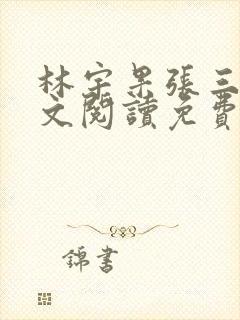 林宇果張三
文閱讀免費
錦書